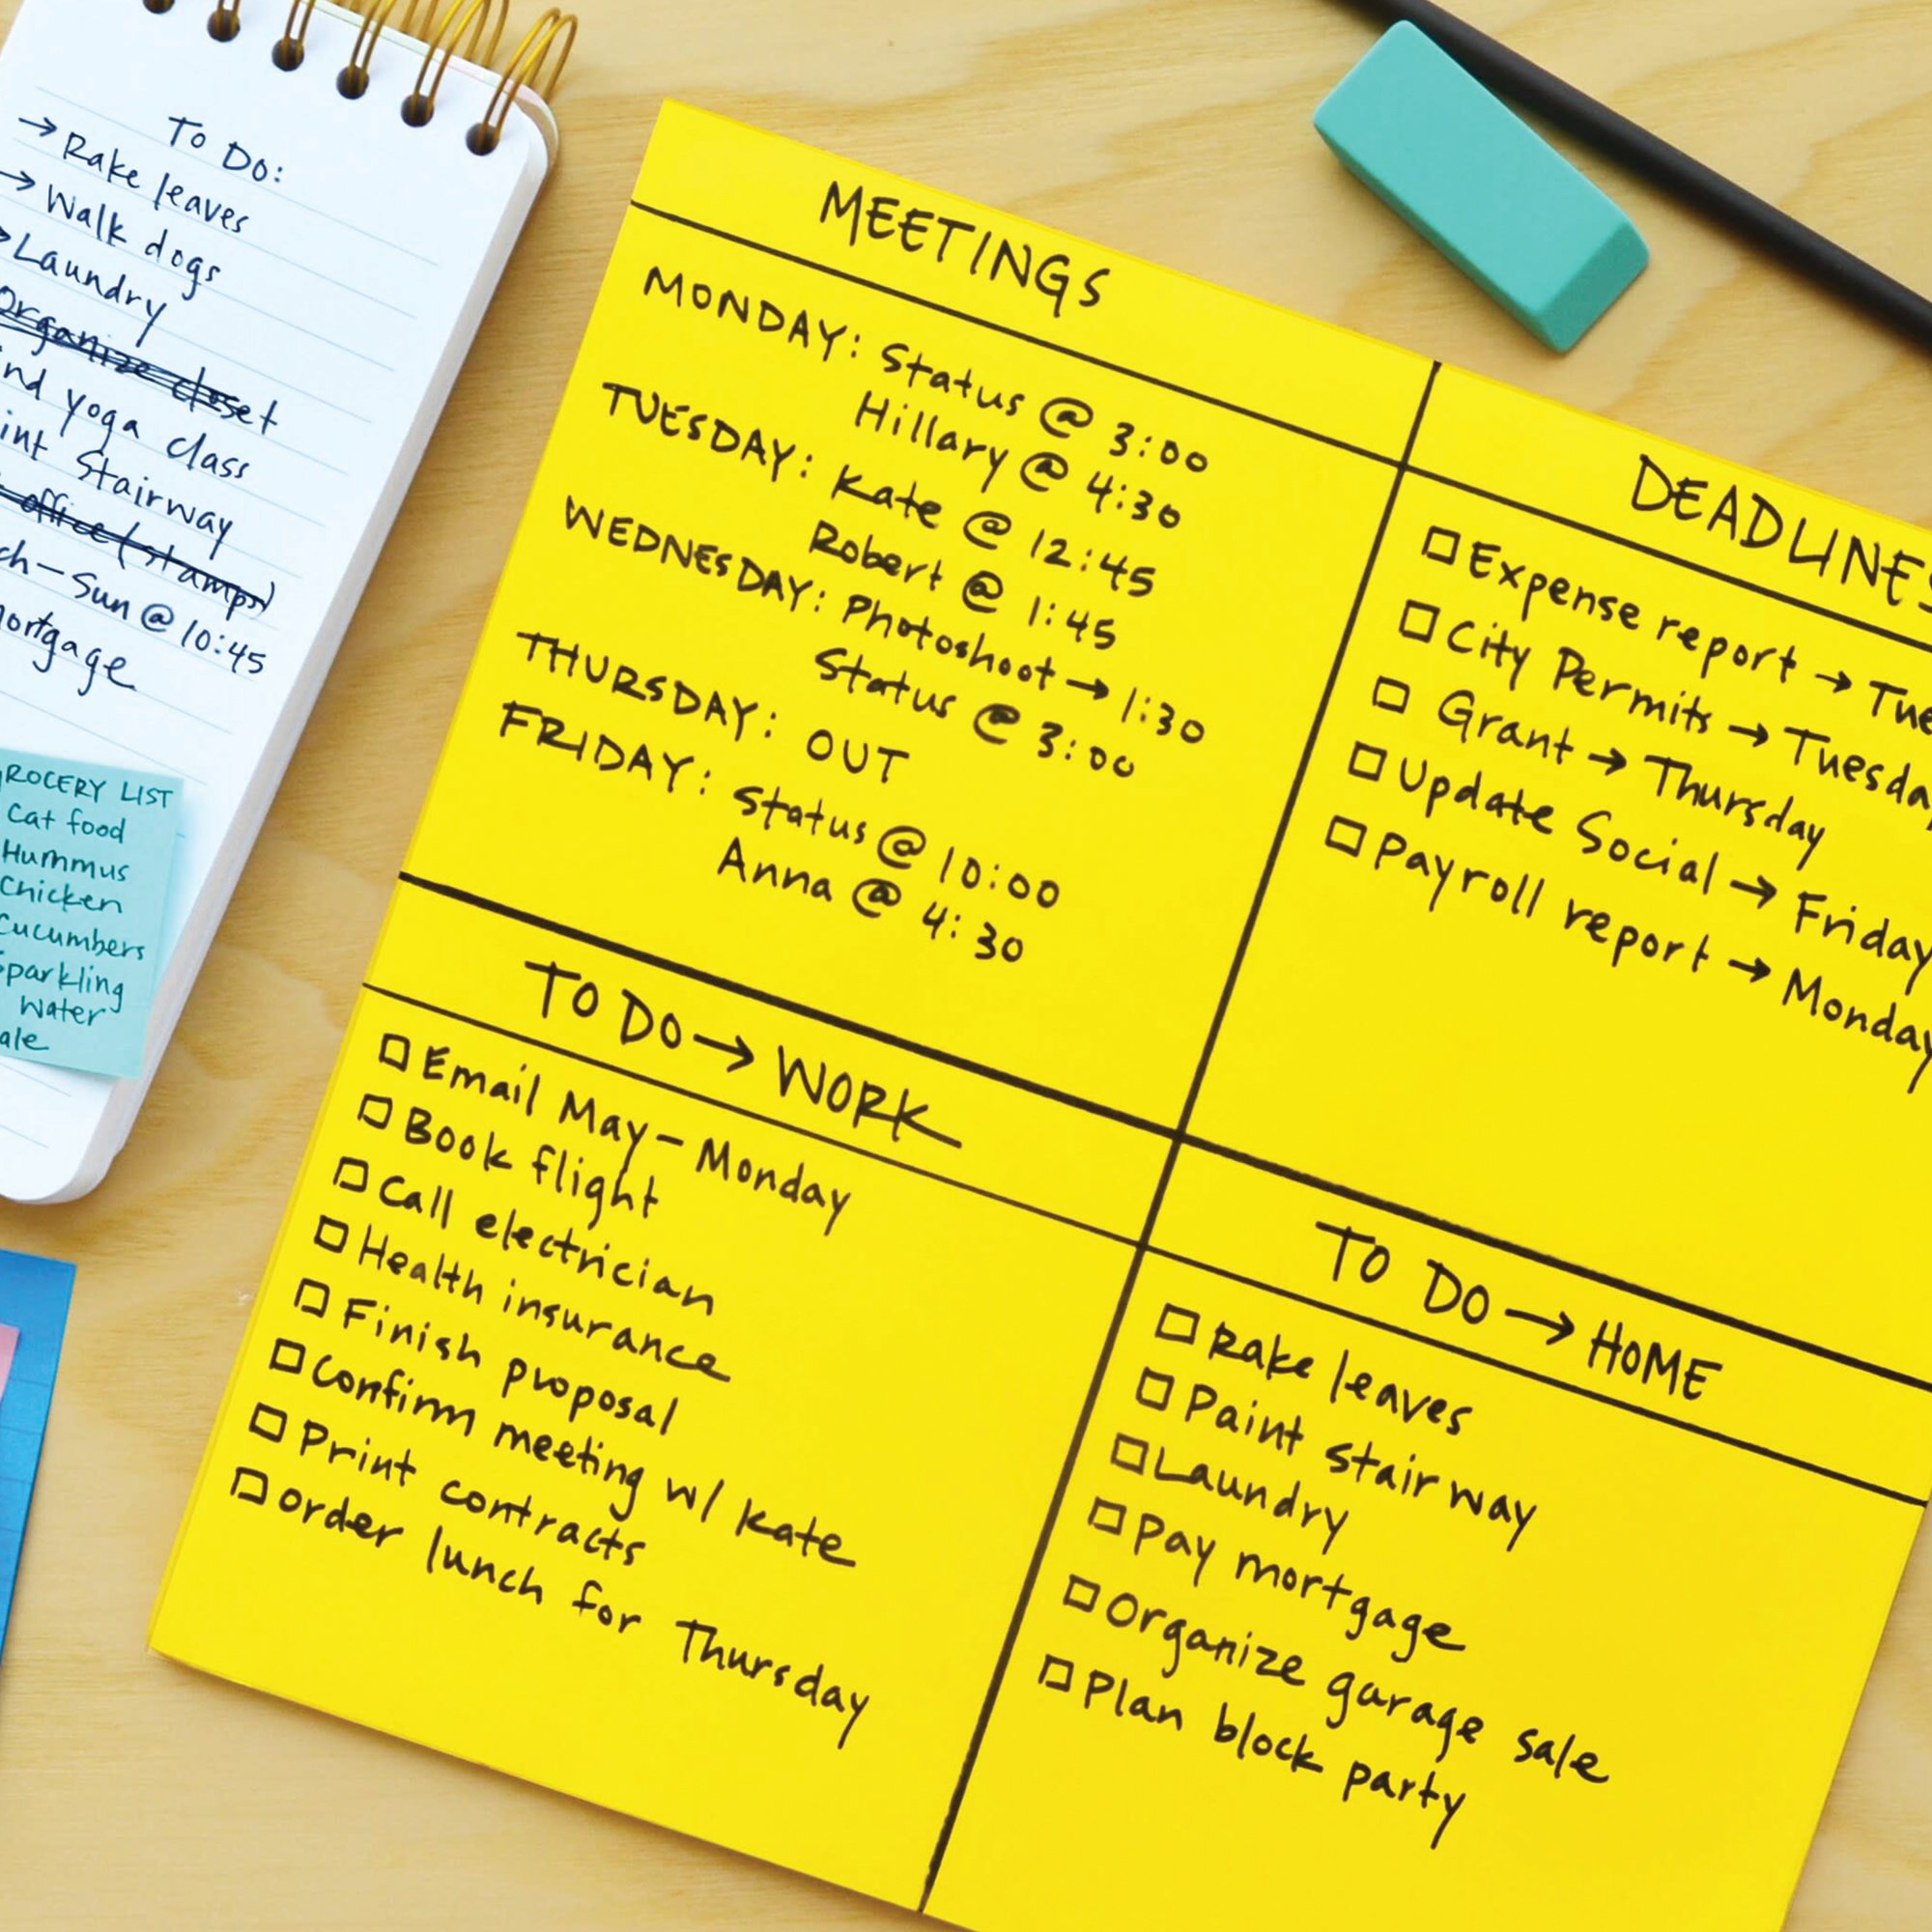 To Do:
→ Rake leaves
→ Walk dogs
→ Laundry
Organize closet
yoga class
Stairway
office (stamps)
Sun @ 10:45
mortgage
GROCERY LIST
Cat food
Hummus
Chicken
Cucumbers
Sparkling
Water
MEETINGS
MONDAY: Status @ 3:00
Hillary @ 4:30
TUESDAY: Kate @ 12:45
Robert @ 1:45
WEDNESDAY: Photoshoot → 1:30
Status @ 3:00
THURSDAY: OUT
FRIDAY: Status @ 10:00
Anna @ 4:30
DEADLINES
□ Expense report → Tue
□ City Permits → Tuesday
□ Grant → Thursday
□ Update Social → Friday
□ Payroll report → Monday
TO DO → WORK
□ Email May - Monday
□ Book flight
□ Call electrician
□ Health insurance
□ Finish proposal
□ Confirm meeting w/ Kate
□ Print contracts
□ Order lunch for Thursday
TO DO → HOME
□ Rake leaves
□ Paint stairway
□ Laundry
□ Pay mortgage
□ Organize garage sale
□ Plan block party